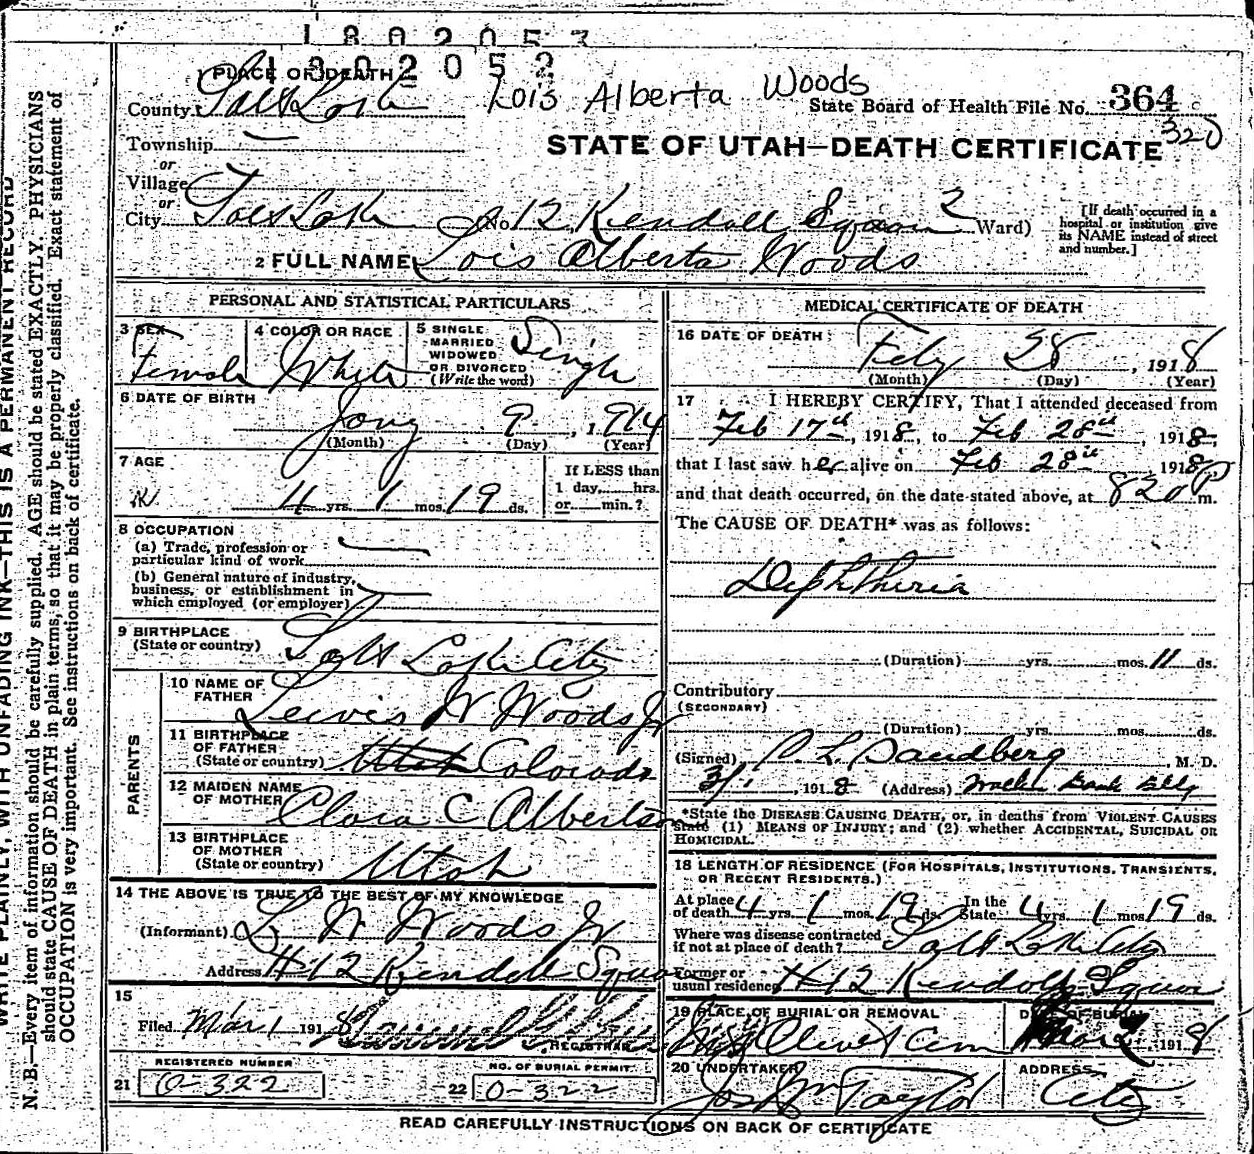 1802053
1302052
PLACE OF DEATH
Lois Alberta Woods
County Salt Lake
State Board of Health File No. 364
320
Township
STATE OF UTAH—DEATH CERTIFICATE
or
Village
or
City Salt Lake No 12 Kendall Square 2 Ward)
[If death occurred in a hospital or institution give its NAME instead of street and number.]
2 FULL NAME Lois Alberta Woods
PERSONAL AND STATISTICAL PARTICULARS
3 SEX Female
4 COLOR OR RACE White
5 SINGLE MARRIED WIDOWED OR DIVORCED (Write the word) Single
6 DATE OF BIRTH
Jany 9, 1914
(Month) (Day) (Year)
7 AGE
4 yrs. 1 mos. 19 ds.
If LESS than 1 day,......hrs. or......min.?
8 OCCUPATION
(a) Trade, profession or particular kind of work
(b) General nature of industry, business, or establishment in which employed (or employer)
9 BIRTHPLACE (State or country) Salt Lake City
PARENTS
10 NAME OF FATHER Lewis W Woods Jr
11 BIRTHPLACE OF FATHER (State or country) Utah Colorado
12 MAIDEN NAME OF MOTHER Clara C Albertson
13 BIRTHPLACE OF MOTHER (State or country) Utah
14 THE ABOVE IS TRUE TO THE BEST OF MY KNOWLEDGE
(Informant) L W Woods Jr
Address #12 Kendall Square
15
Filed Mar 1 1918
REGISTRAR
REGISTERED NUMBER
21 0-322
NO. OF BURIAL PERMIT
22 0-322
MEDICAL CERTIFICATE OF DEATH
16 DATE OF DEATH
Feby 28, 1918
(Month) (Day) (Year)
17 I HEREBY CERTIFY, That I attended deceased from
Feb 17th, 1918, to Feb 28th, 1918,
that I last saw her alive on Feb 28th, 1918
and that death occurred, on the date stated above, at 820 P m.
The CAUSE OF DEATH* was as follows:
Diphtheria
(Duration) yrs. mos. 11 ds.
Contributory
(SECONDARY)
(Duration) yrs. mos. ds.
(Signed) Sandberg, M. D.
3/1, 1918 (Address) Walker Bank Bldg
*State the DISEASE CAUSING DEATH, or, in deaths from VIOLENT CAUSES
state (1) MEANS OF INJURY; and (2) whether ACCIDENTAL, SUICIDAL OR
HOMICIDAL.
18 LENGTH OF RESIDENCE (FOR HOSPITALS, INSTITUTIONS, TRANSIENTS,
OR RECENT RESIDENTS.)
At place of death 4 yrs. 1 mos. 19 ds. In the State 4 yrs. 1 mos. 19 ds.
Where was disease contracted if not at place of death? Salt Lake City
Former or usual residence #12 Kendall Square
19 PLACE OF BURIAL OR REMOVAL Mt Olivet Cem
DATE OF BURIAL Mar 2 1918
20 UNDERTAKER Jos Wm Taylor
ADDRESS City
READ CAREFULLY INSTRUCTIONS ON BACK OF CERTIFICATE
WRITE PLAINLY, WITH UNFADING INK—THIS IS A PERMANENT RECORD
N. B.—Every item of information should be carefully supplied. AGE should be stated EXACTLY. PHYSICIANS
should state CAUSE OF DEATH in plain terms, so that it may be properly classified. Exact statement of
OCCUPATION is very important. See instructions on back of certificate.